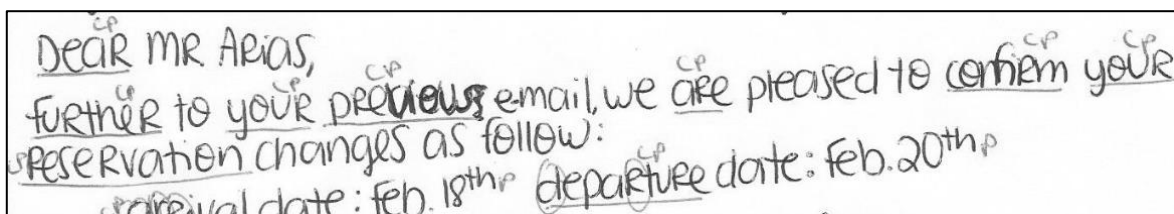 Dear MR Arias,
further to your previous e-mail, we are pleased to confirm your
reservation changes as follow:
arrival date: feb. 18th departure date: feb. 20th